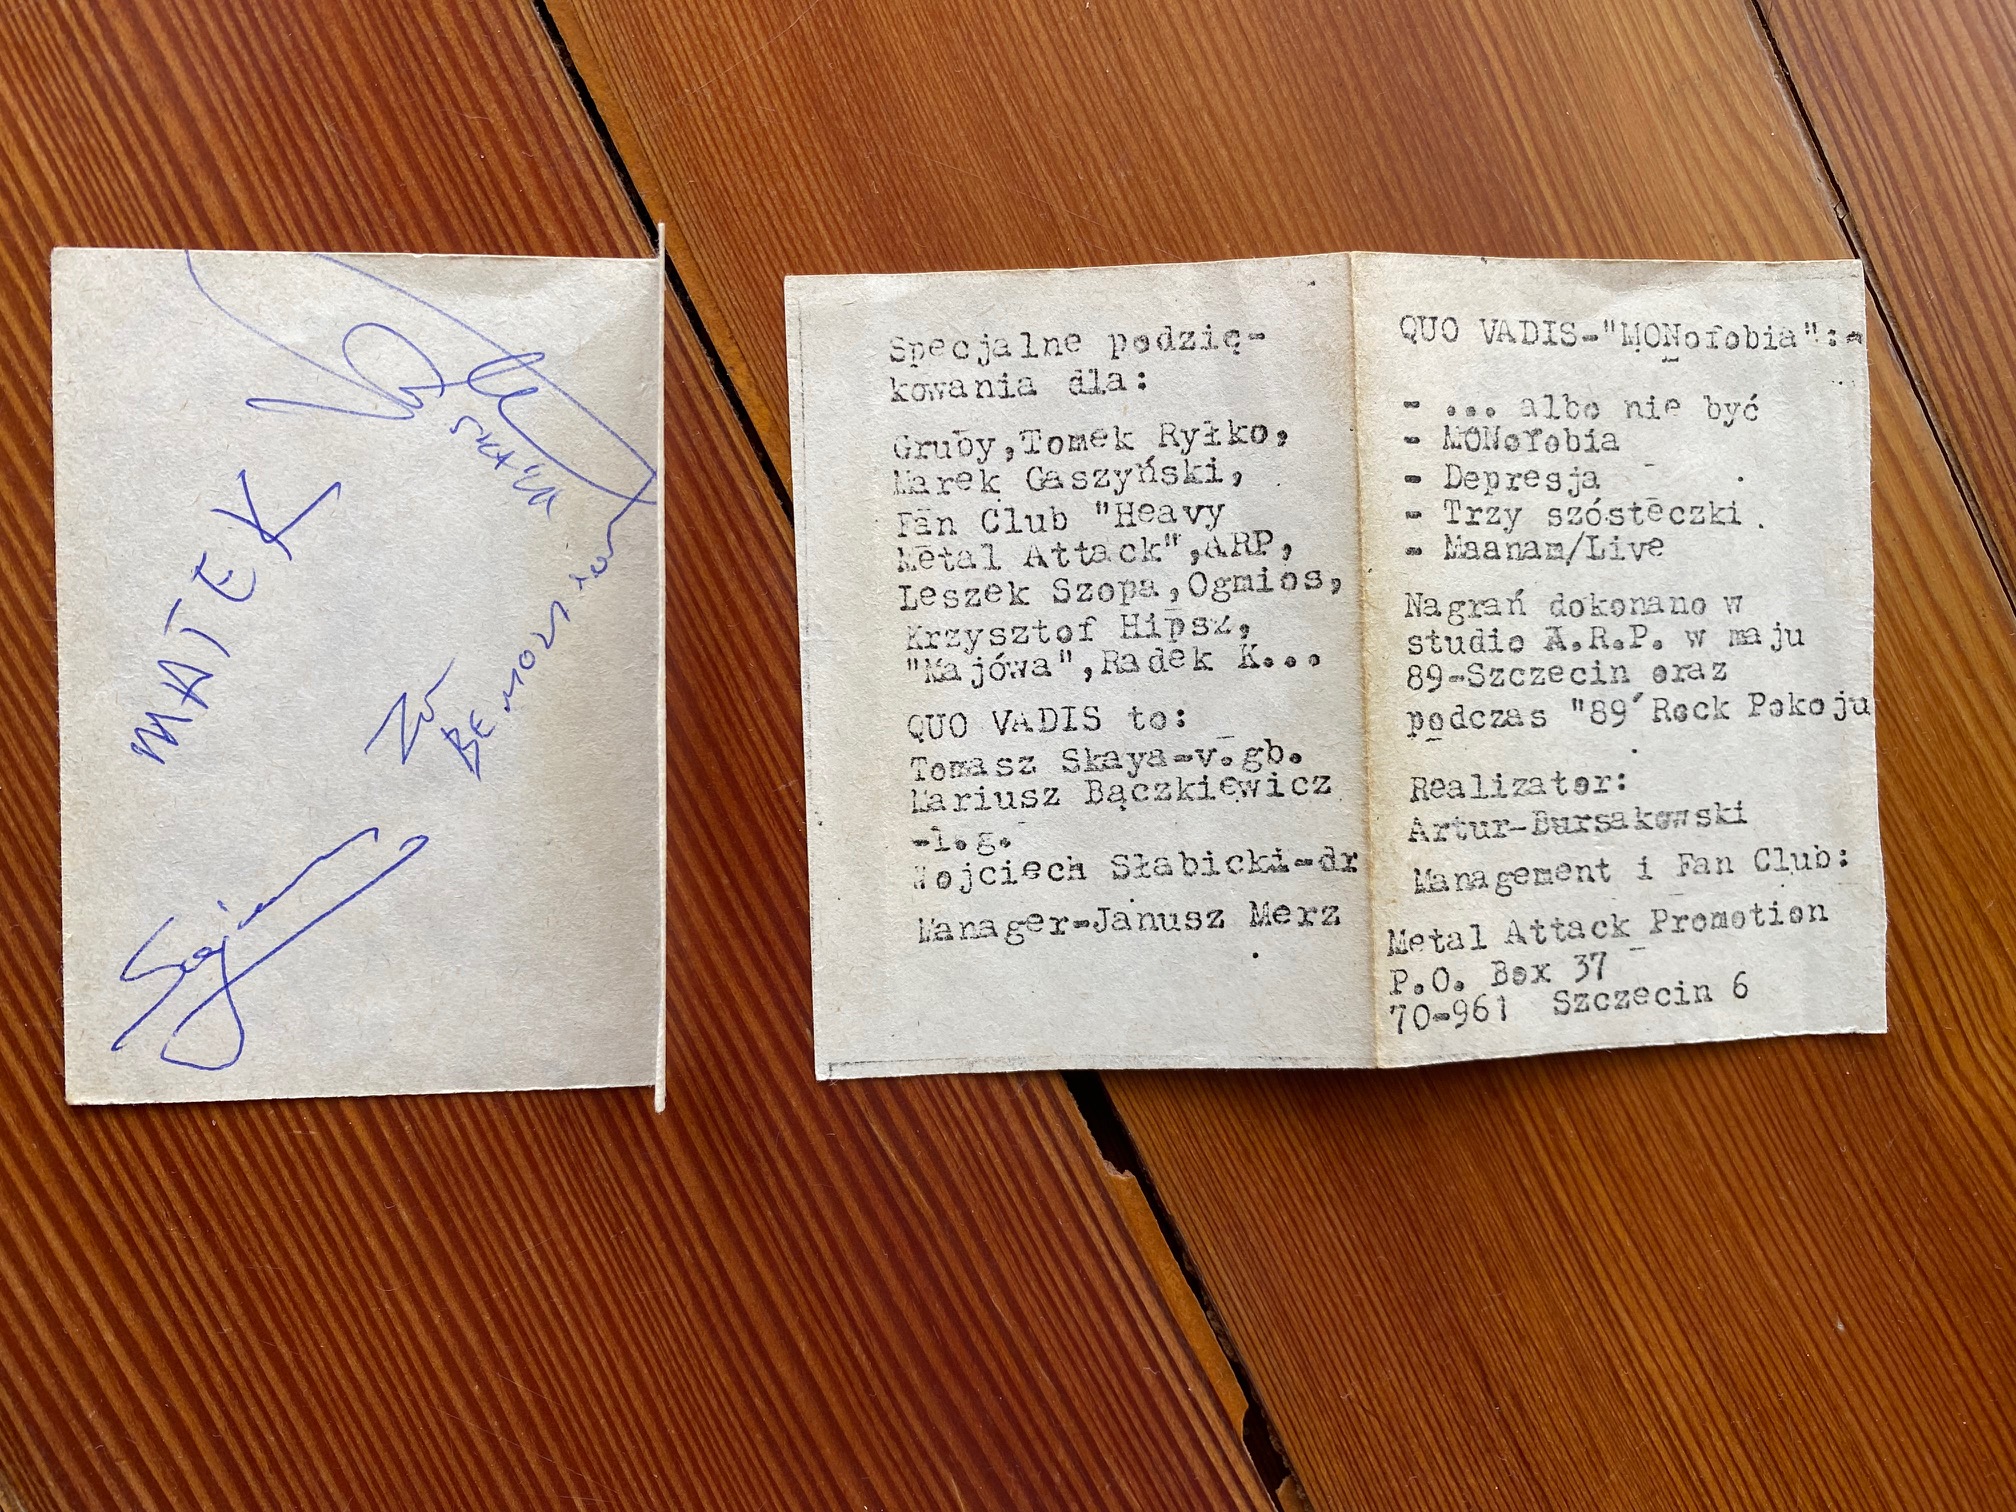 MATEK
SKAYA
Specjalne podzię-
kowania dla:
Gruby,Tomek Ryłko,
Marek Gaszyński,
Fan Club "Heavy
Metal Attack",ARP,
Leszek Szopa,Ogmios,
Krzysztof Hipsz,
"Majówa",Radek K...
QUO VADIS to:
Tomasz Skaya-v.gb.
Mariusz Bączkiewicz
-l.g.
Wojciech Słabicki-dr
Manager-Janusz Merz
QUO VADIS-"MONofobia":-
- ... albo nie być
- MONofobia
- Depresja
- Trzy szósteczki
- Maanam/Live
Nagrań dokonano w
studio A.R.P. w maju
89-Szczecin oraz
podczas "89'Rock Pokoju
Realizator:
Artur-Bursakowski
Management i Fan Club:
Metal Attack Promotion
P.O. Box 37
70-961 Szczecin 6